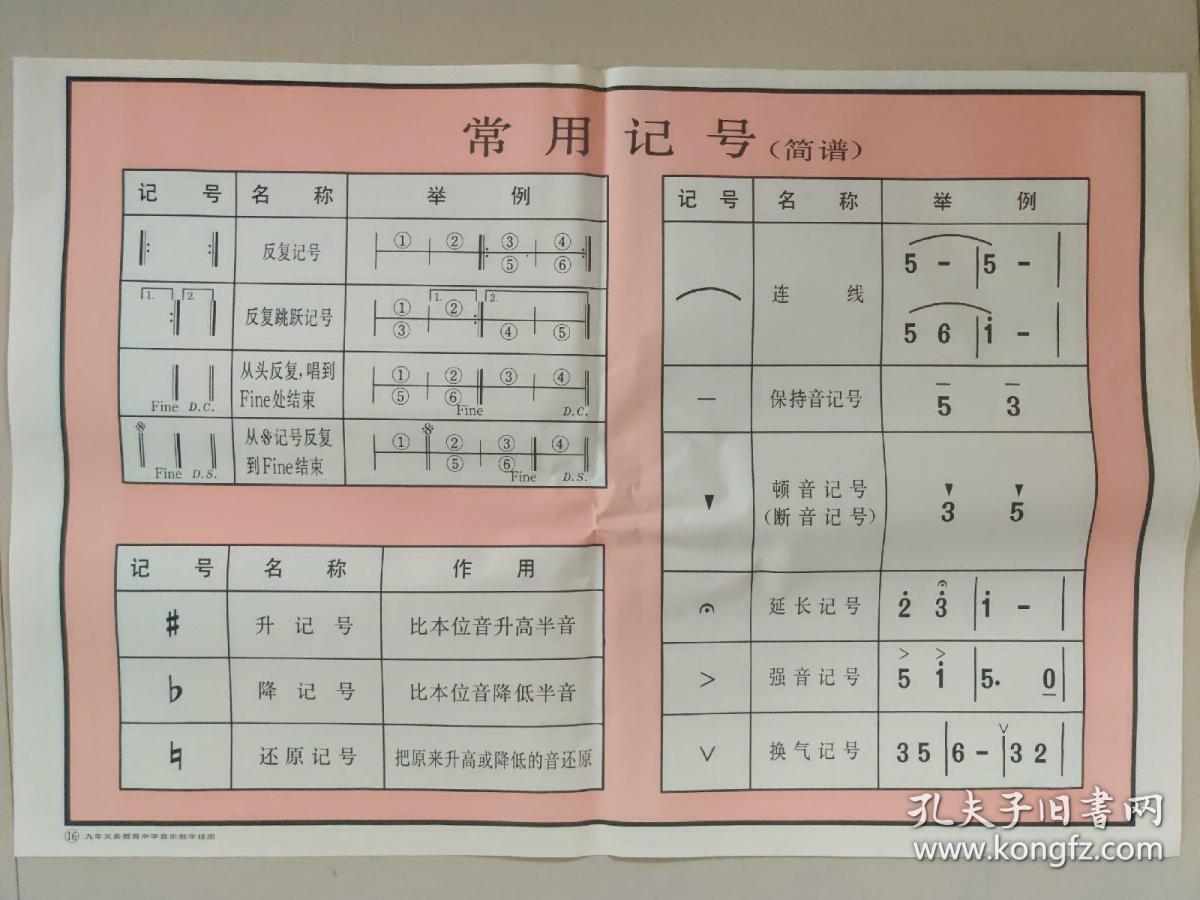 常用记号（简谱）
记号 名称 举例
反复记号 ① ② ③ ④
⑤ ⑥
1. 2. 反复跳跃记号 ① 1. ② 2.
③ ④ ⑤
Fine D.C. 从头反复，唱到 ① ② ③ ④
Fine处结束 ⑤ ⑥ Fine D.C.
𝄋 Fine D.S. 从𝄋记号反复 ① 𝄋 ② ③ ④
到Fine结束 ⑤ ⑥ Fine D.S.
记号 名称 作用
♯ 升记号 比本位音升高半音
♭ 降记号 比本位音降低半音
♮ 还原记号 把原来升高或降低的音还原
记号 名称 举例
连线 5 - | 5 - |
5 6 | i - |
— 保持音记号 5 3
▼ 顿音记号 3 5
（断音记号）
𝄐 延长记号 2̇ 3̇ | i - |
> 强音记号 5 i | 5. 0 |
∨ 换气记号 3 5 | 6 - ∨ | 3 2 |
⑯ 九年义务教育中学音乐教学挂图
孔夫子旧书网
www.kongfz.com